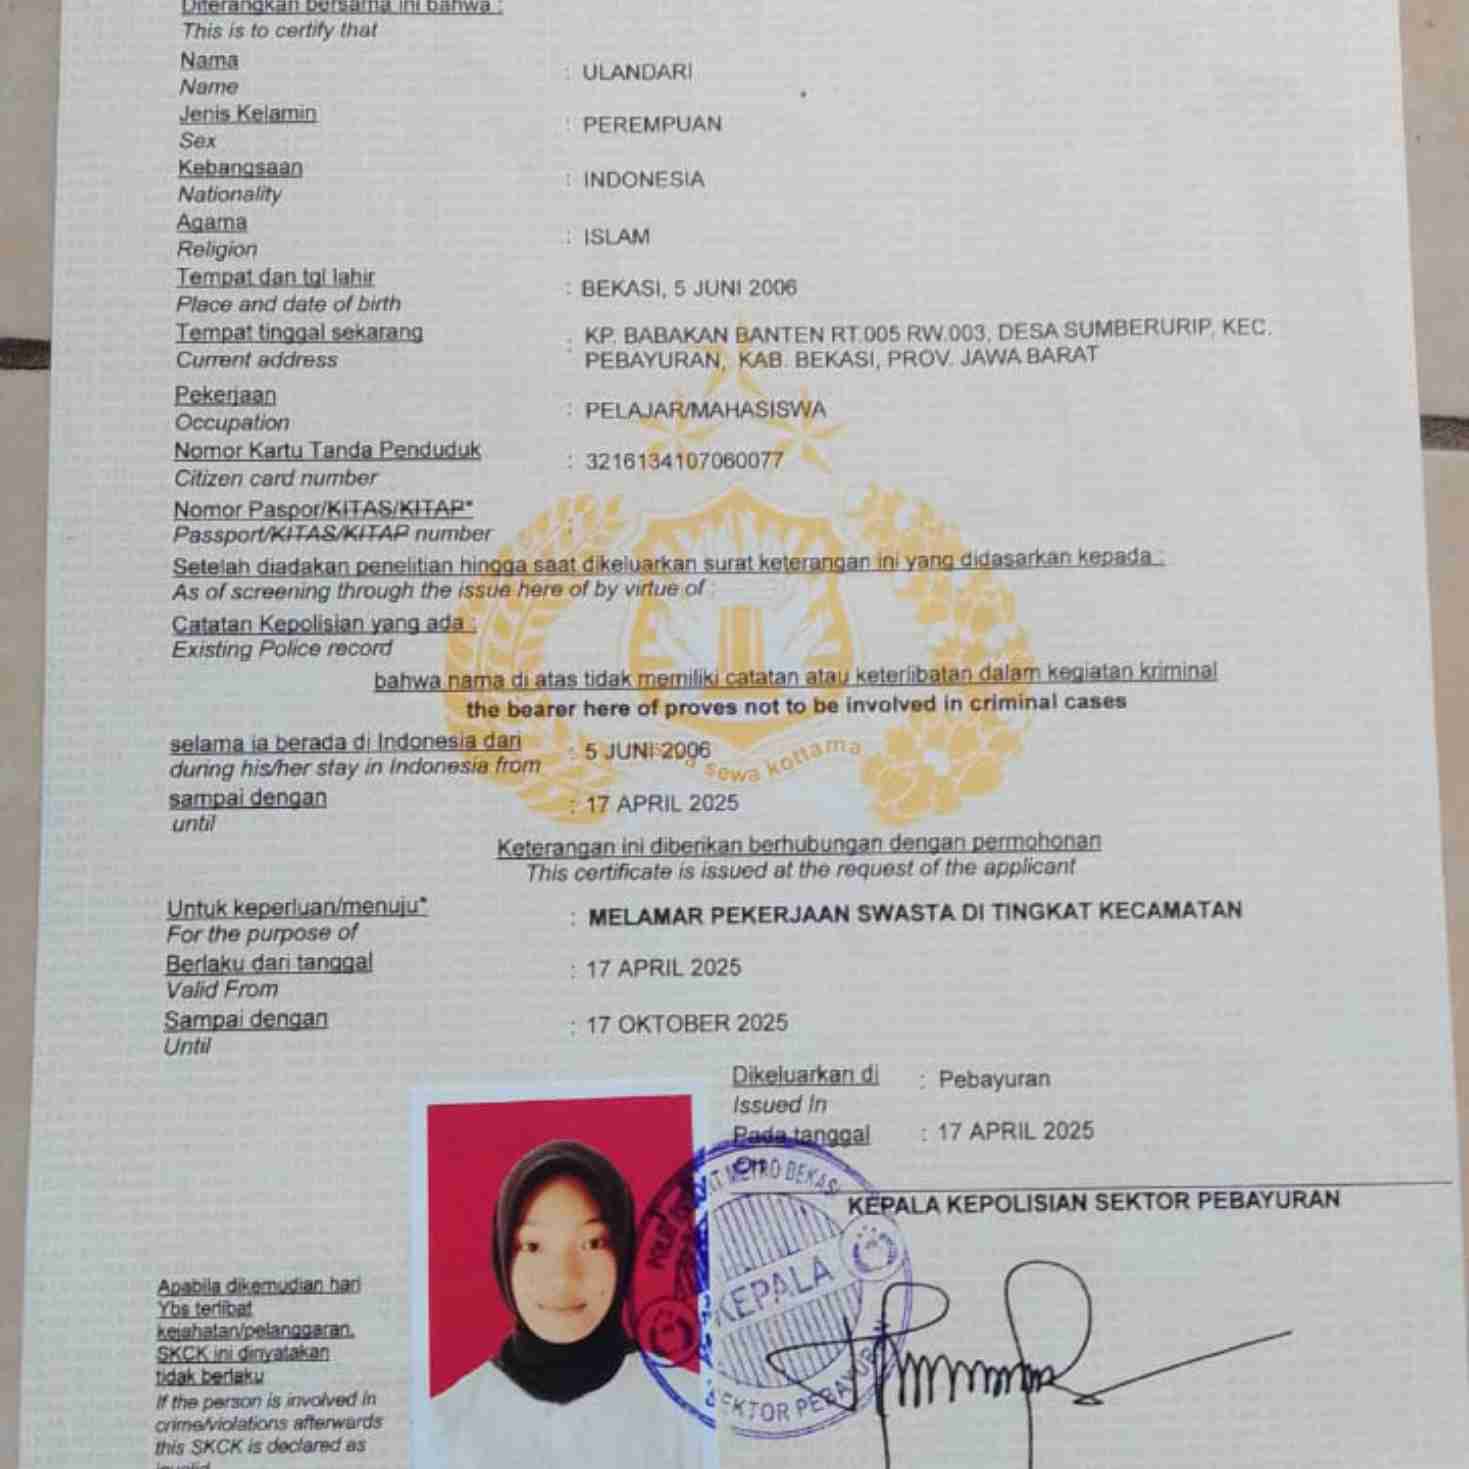 Diterangkan bersama ini bahwa :
This is to certify that
Nama : ULANDARI
Name
Jenis Kelamin : PEREMPUAN
Sex
Kebangsaan : INDONESIA
Nationality
Agama : ISLAM
Religion
Tempat dan tgl lahir : BEKASI, 5 JUNI 2006
Place and date of birth
Tempat tinggal sekarang : KP. BABAKAN BANTEN RT.005 RW.003, DESA SUMBERURIP, KEC.
Current address : PEBAYURAN, KAB. BEKASI, PROV. JAWA BARAT
Pekerjaan : PELAJAR/MAHASISWA
Occupation
Nomor Kartu Tanda Penduduk : 3216134107060077
Citizen card number
Nomor Paspor/KITAS/KITAP*
Passport/KITAS/KITAP number :
Setelah diadakan penelitian hingga saat dikeluarkan surat keterangan ini yang didasarkan kepada :
As of screening through the issue here of by virtue of :
Catatan Kepolisian yang ada :
Existing Police record
bahwa nama di atas tidak memiliki catatan atau keterlibatan dalam kegiatan kriminal
the bearer here of proves not to be involved in criminal cases
selama ia berada di Indonesia dari : 5 JUNI 2006
during his/her stay in Indonesia from
sewa kottama
sampai dengan : 17 APRIL 2025
until
Keterangan ini diberikan berhubungan dengan permohonan
This certificate is issued at the request of the applicant
Untuk keperluan/menuju* : MELAMAR PEKERJAAN SWASTA DI TINGKAT KECAMATAN
For the purpose of
Berlaku dari tanggal : 17 APRIL 2025
Valid From
Sampai dengan : 17 OKTOBER 2025
Until
Dikeluarkan di : Pebayuran
Issued In
Pada tanggal : 17 APRIL 2025
On
KEPALA KEPOLISIAN SEKTOR PEBAYURAN
METRO BEKASI
KEPALA
SEKTOR PEBAYUR
Apabila dikemudian hari
Ybs terlibat
kejahatan/pelanggaran,
SKCK ini dinyatakan
tidak berlaku
If the person is involved in
crime/violations afterwards
this SKCK is declared as